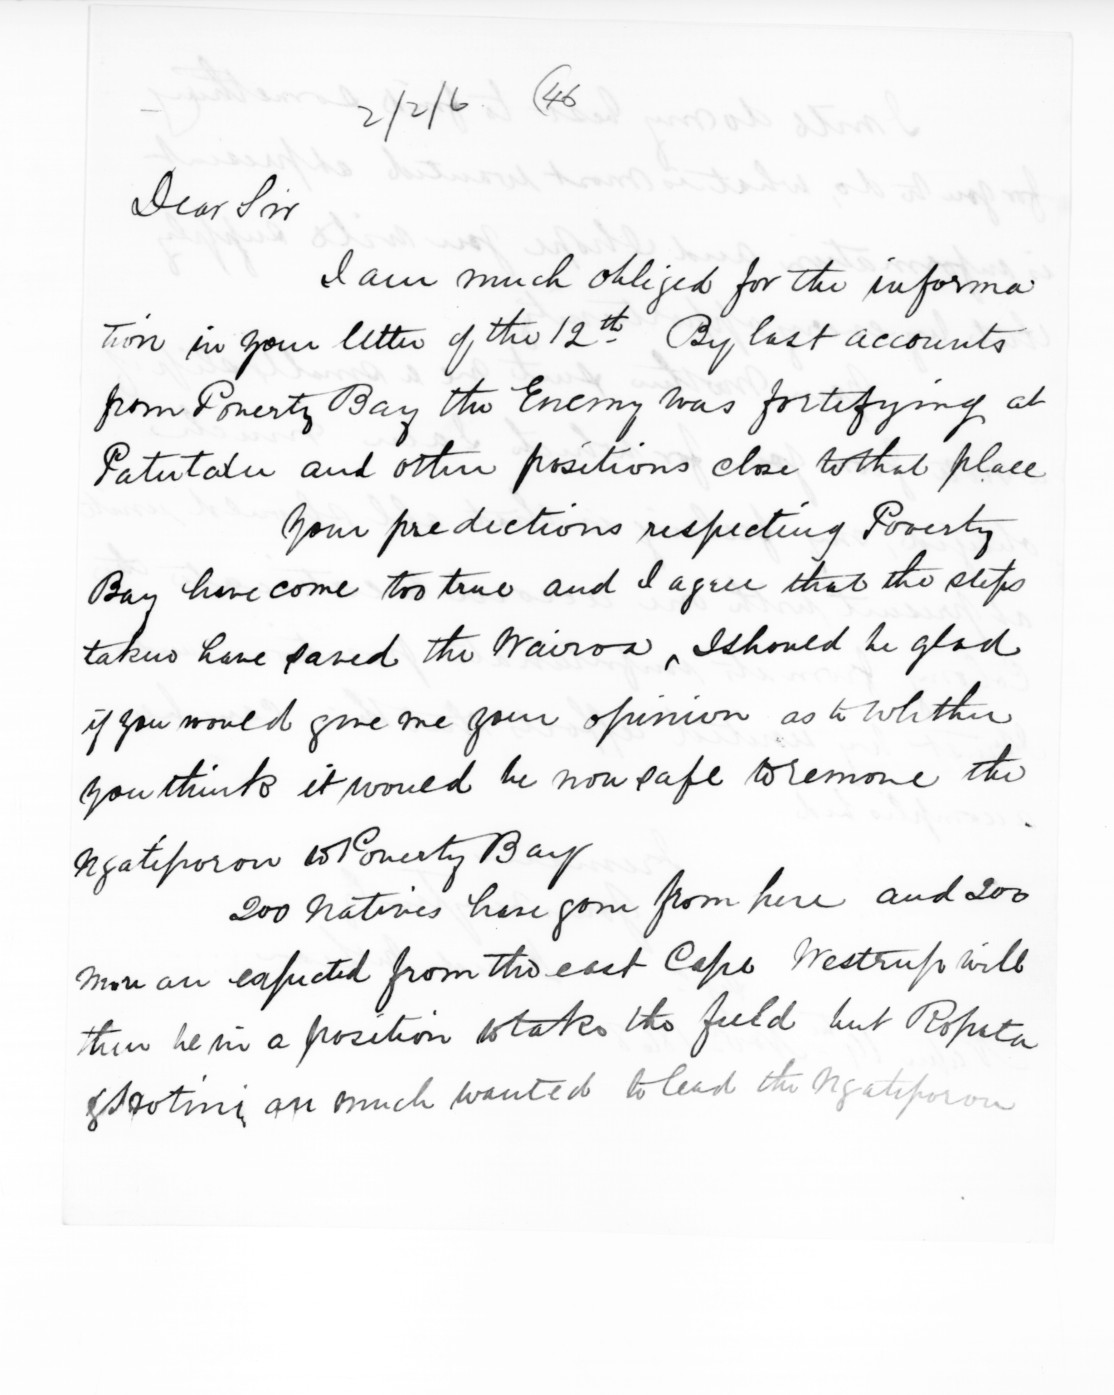 2/2/6 (46
Dear Sir
I am much obliged for the informa
tion in your letter of the 12th. By last accounts
from Poverty Bay the Enemy was fortifying at
Patutahi and other positions close to that place
Your predictions respecting Poverty
Bay have come too true and I agree that the steps
taken have saved the Wairoa, I should be glad
if you would give me your opinion as to whether
you think it would be now safe to remove the
Ngatiporou to Poverty Bay
200 Natives have gone from here and 200
more are expected from the east Cape Westrup will
then be in a position to take the field but Ropata
& Hotini are much wanted to lead the Ngatiporou